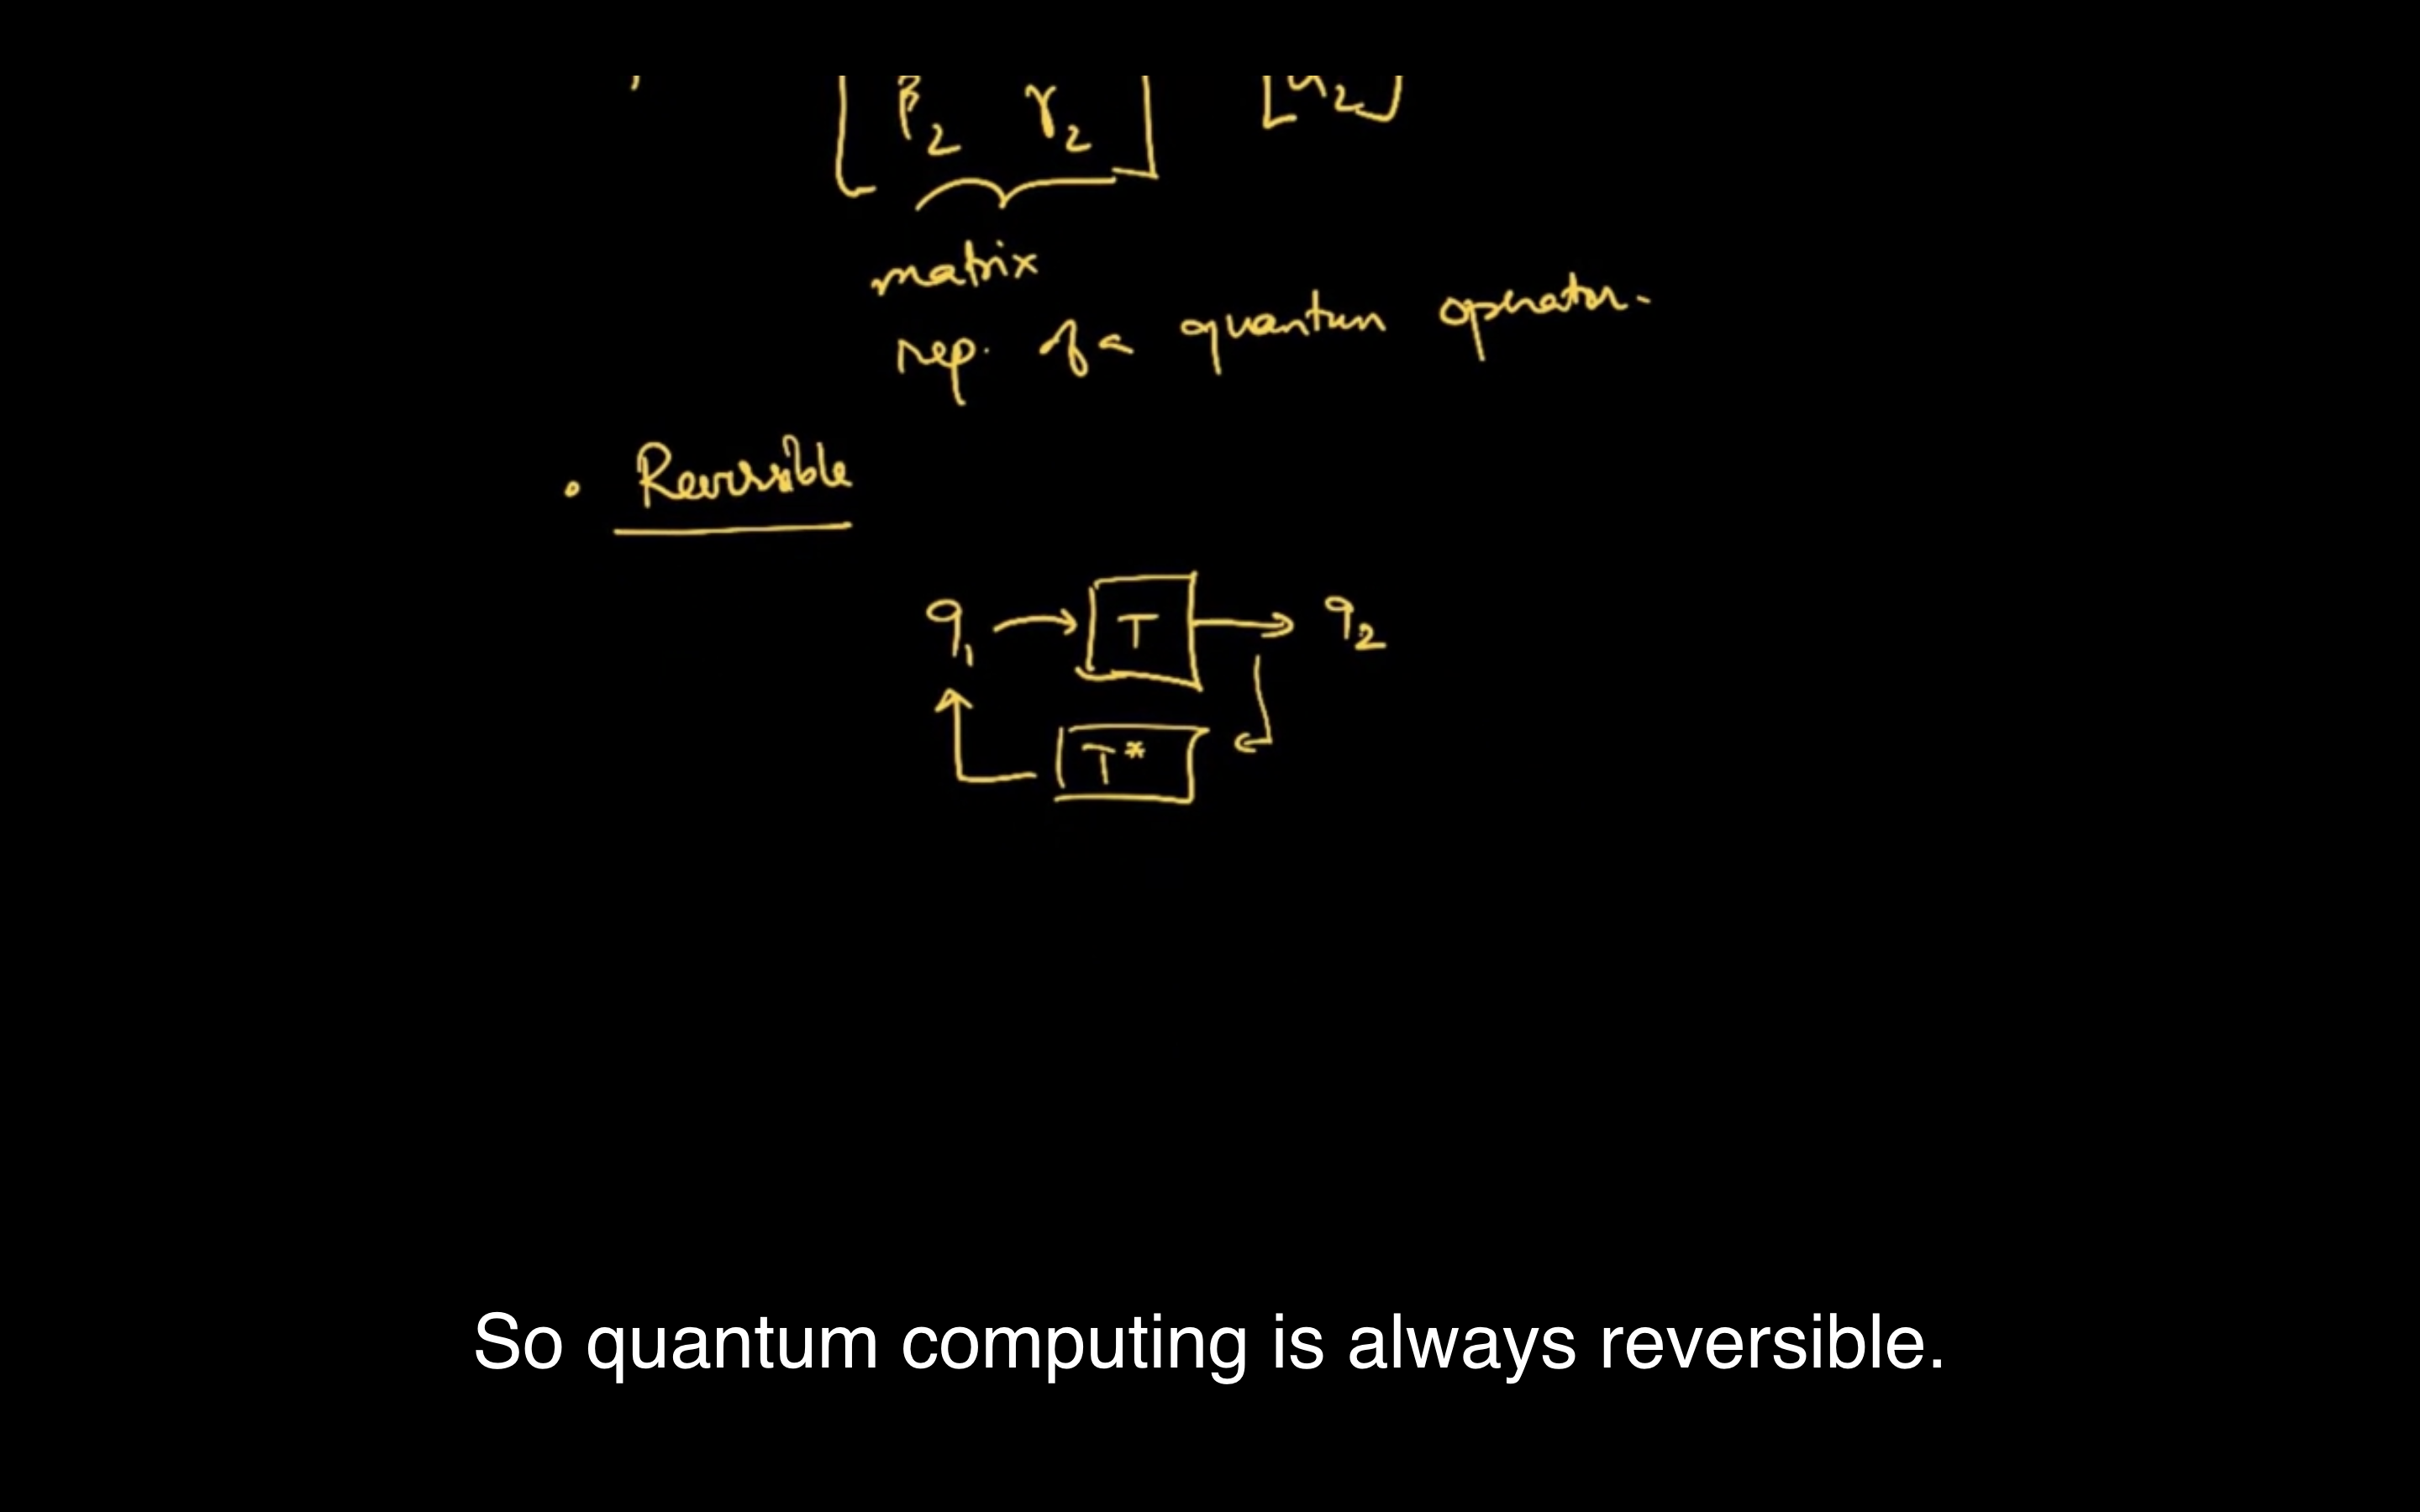 β₂ γ₂
matrix
rep. of a quantum operator.
• Reversible
q₁ → T → q₂
T*
So quantum computing is always reversible.